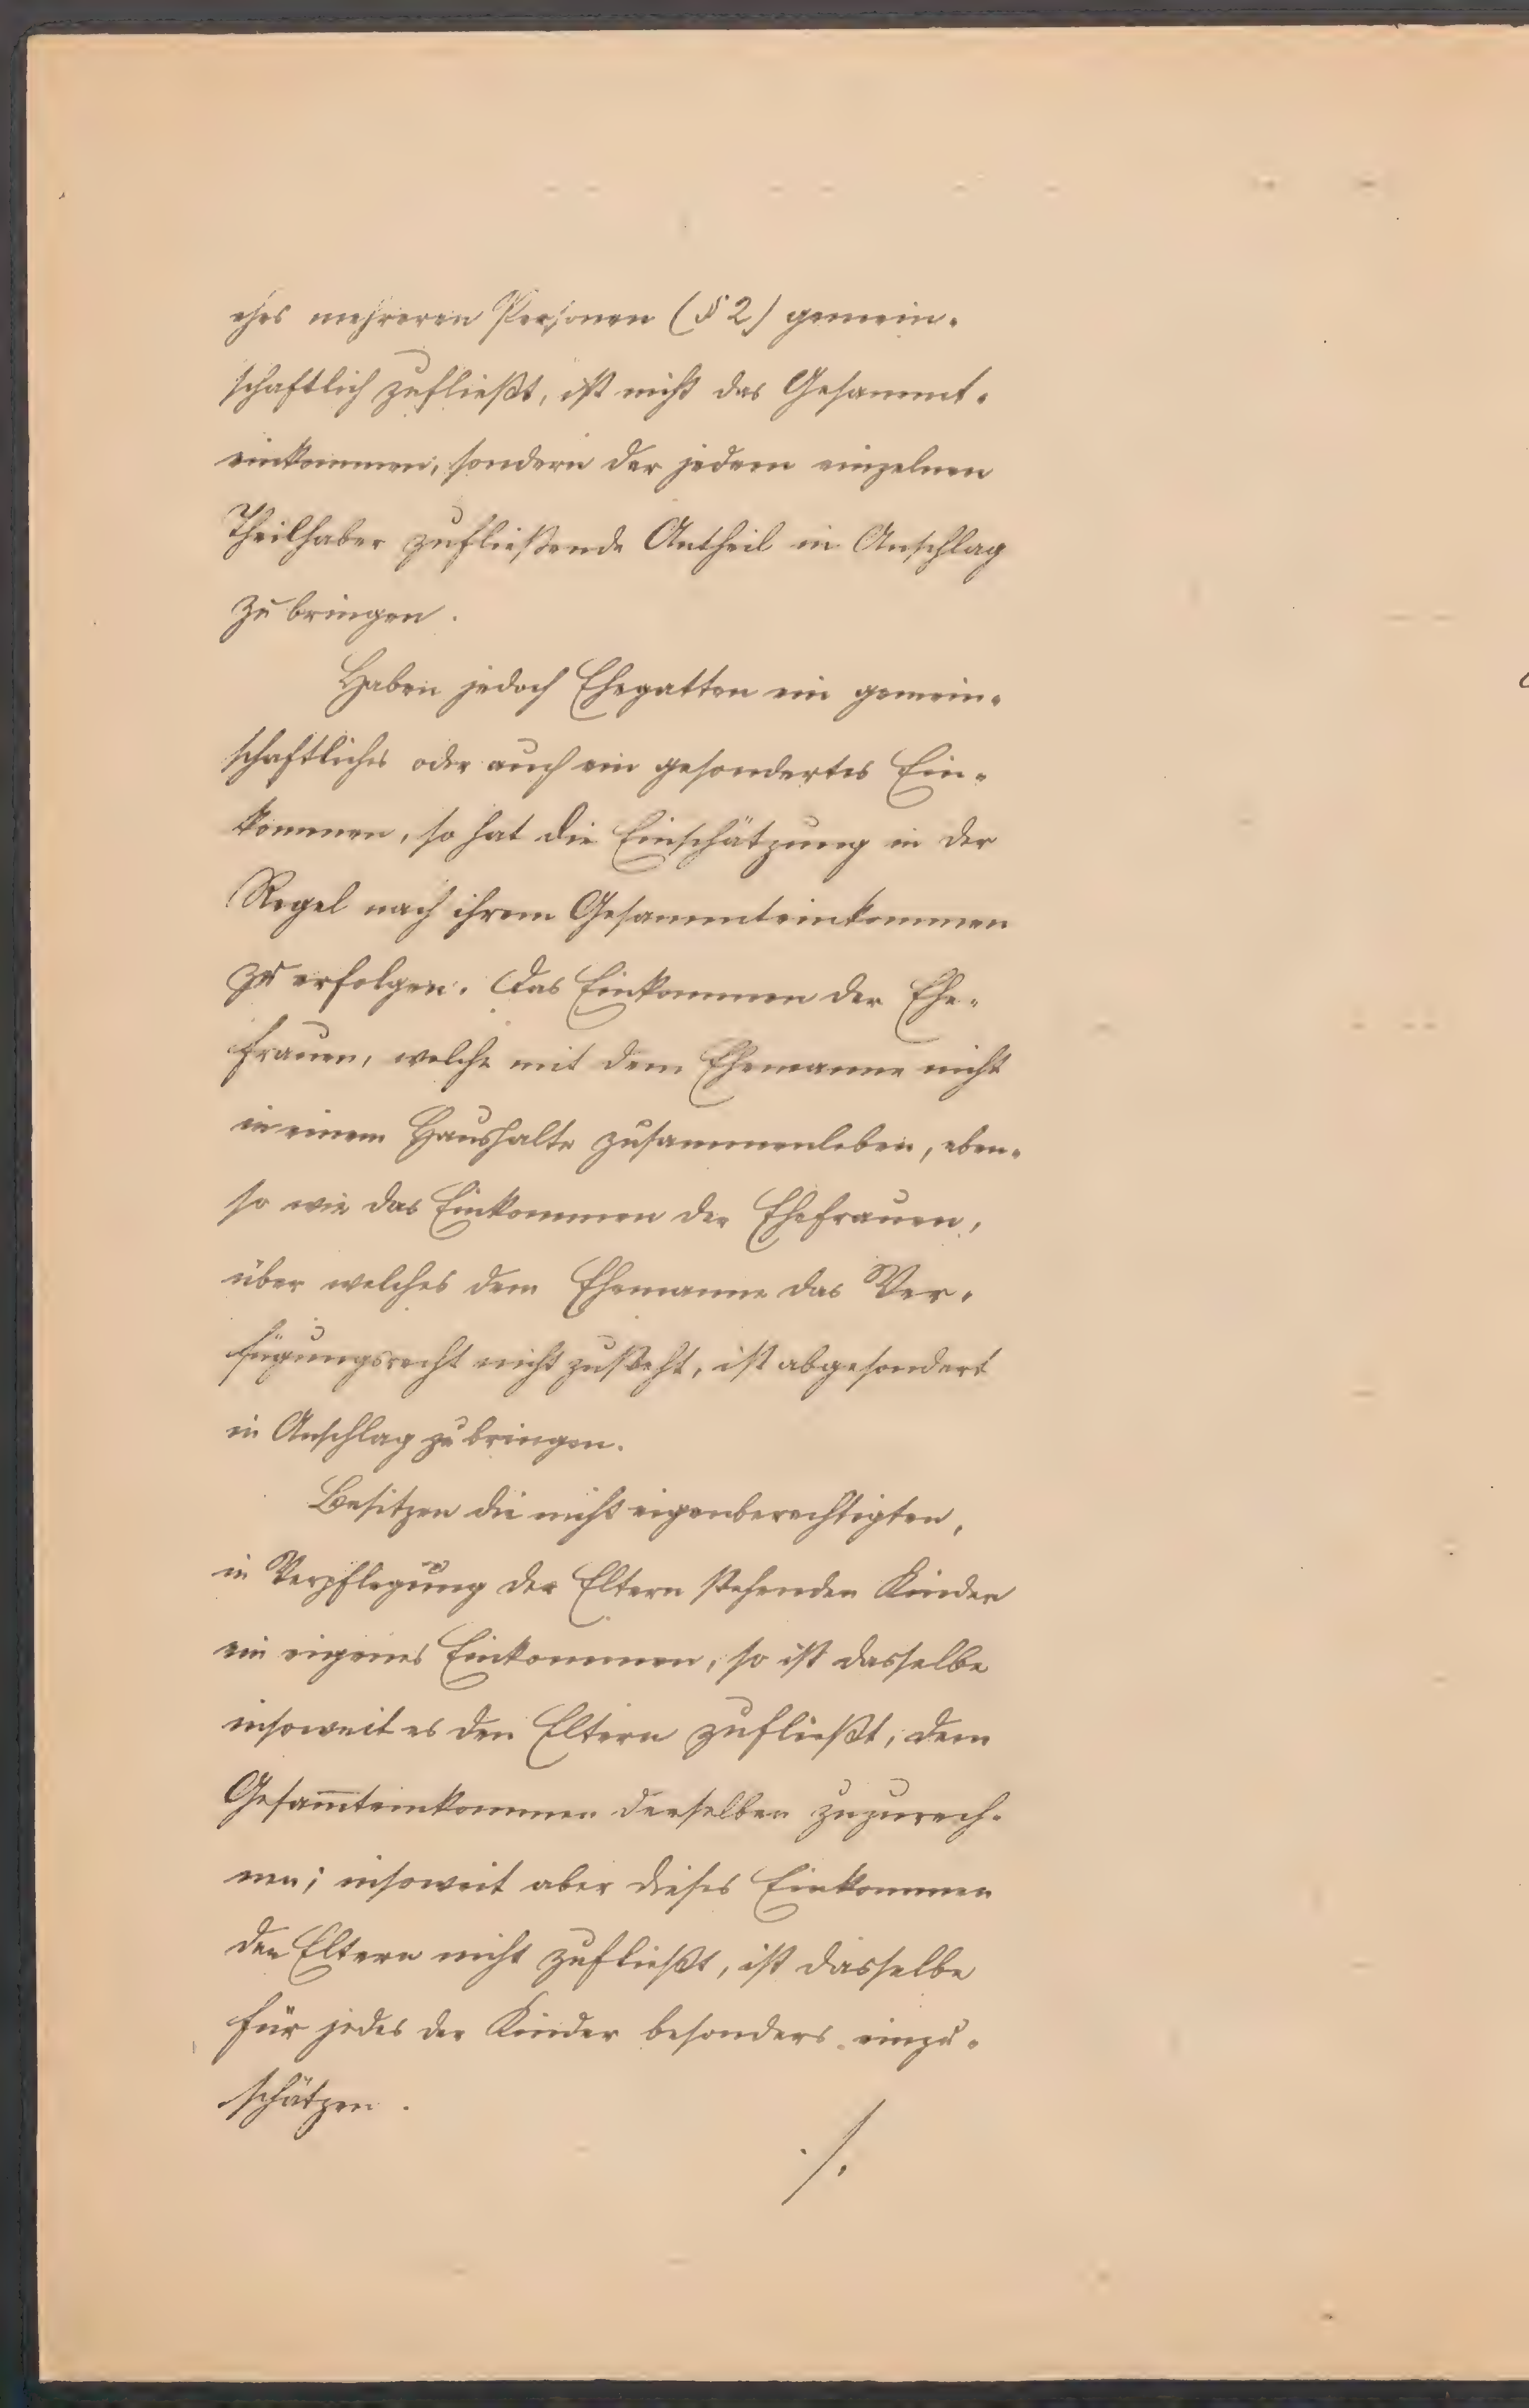 ches mehreren Personen (§ 2) gemein-
schaftlich zufließt, ist nicht das Gesammt-
einkommen, sondern der jedem einzelnen
Theilhaber zufließende Antheil in Anschlag
zu bringen.
Haben jedoch Ehegatten ein gemein-
schaftliches oder auch ein gesondertes Ein-
kommen, so hat die Einschätzung in der
Regel nach ihrem Gesammteinkommen
zu erfolgen. Das Einkommen der Ehe-
frauen, welche mit dem Ehemanne nicht
in einem Haushalte zusammenleben, eben-
so wie das Einkommen der Ehefrauen,
über welches dem Ehemanne das Ver-
fügungsrecht nicht zusteht, ist abgesondert
in Anschlag zu bringen.
Besitzen die nicht eigenberechtigten,
in Verpflegung der Eltern stehenden Kinder
ein eigenes Einkommen, so ist dasselbe
insoweit es den Eltern zufließt, dem
Gesam̅teinkommen derselben zuzurech-
nen; insoweit aber dieses Einkommen
den Eltern nicht zufließt, ist dasselbe
für jedes der Kinder besonders einzu-
schätzen.
./.